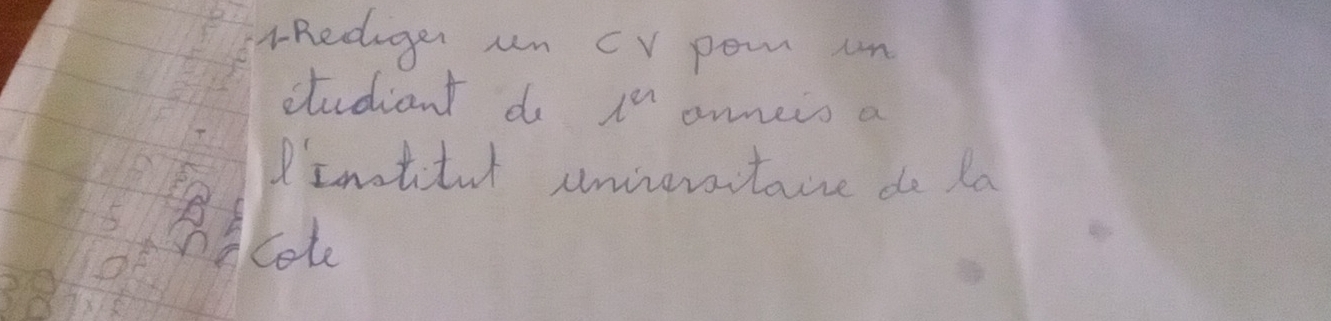 1-Rediger un CV pour un
étudiant de 1er annéeis a
l'Institut universitaire de la
Cote